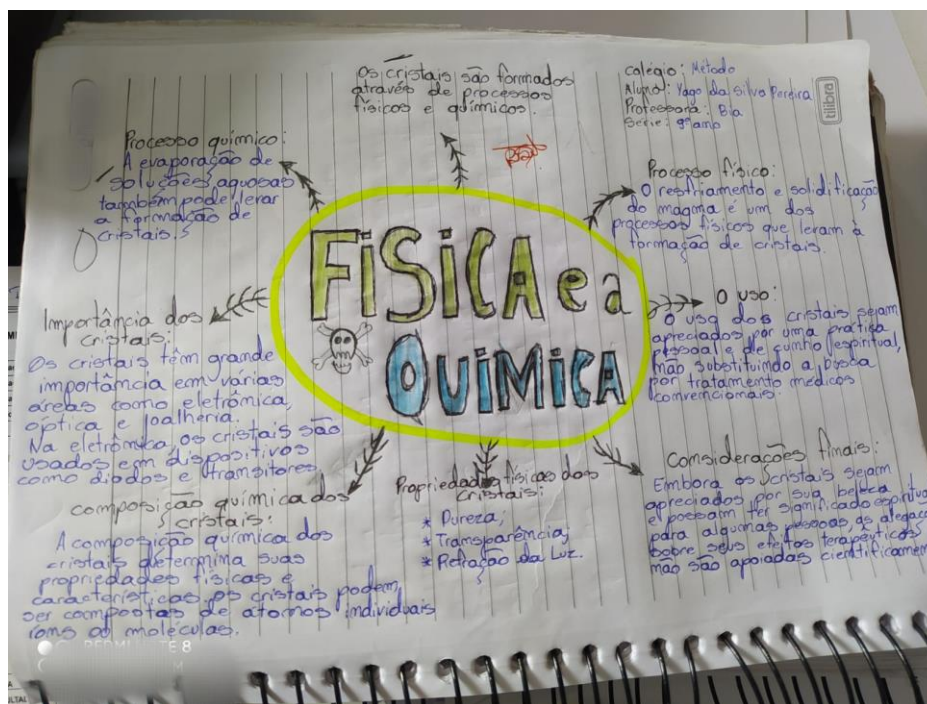 Os cristais são formados
através de processos
físicos e químicos.
colégio: Método
Aluno: Yago da Silva Pereira
Professora: Bia
Série: 9º ano
tilibra
Processo químico:
A evaporação de
soluções aquosas
também pode lerar
a formação de
cristais.
Processo físico:
O resfriamento e solidificação
do magma é um dos
processos físicos que leram à
formação de cristais.
FÍSICA e a
QUÍMICA
Importância dos
cristais:
Os cristais têm grande
importância em várias
áreas como eletrônica,
óptica e joalheria.
Na eletrônica, os cristais são
usados em dispositivos
como díodos e transitores.
O uso:
O uso dos cristais sejam
apreciados por uma prática
pessoal e de cunho espiritual,
não substituindo a busca
por tratamento médicos
convencionais.
composição química dos
cristais:
A composição química dos
cristais determina suas
propriedades físicas e
características, os cristais podem
ser compostas de átomos individuais
íons ou moléculas.
Propriedades físicas dos
cristais:
* Dureza;
* Transparência;
* Refração da Luz.
Considerações finais:
Embora os cristais sejam
apreciados por sua beleza
e possam ter significado espiritua
para algumas pessoas, as alegaçõ
sobre seus efeitos terapêuticos
não são apoiadas cientificamen